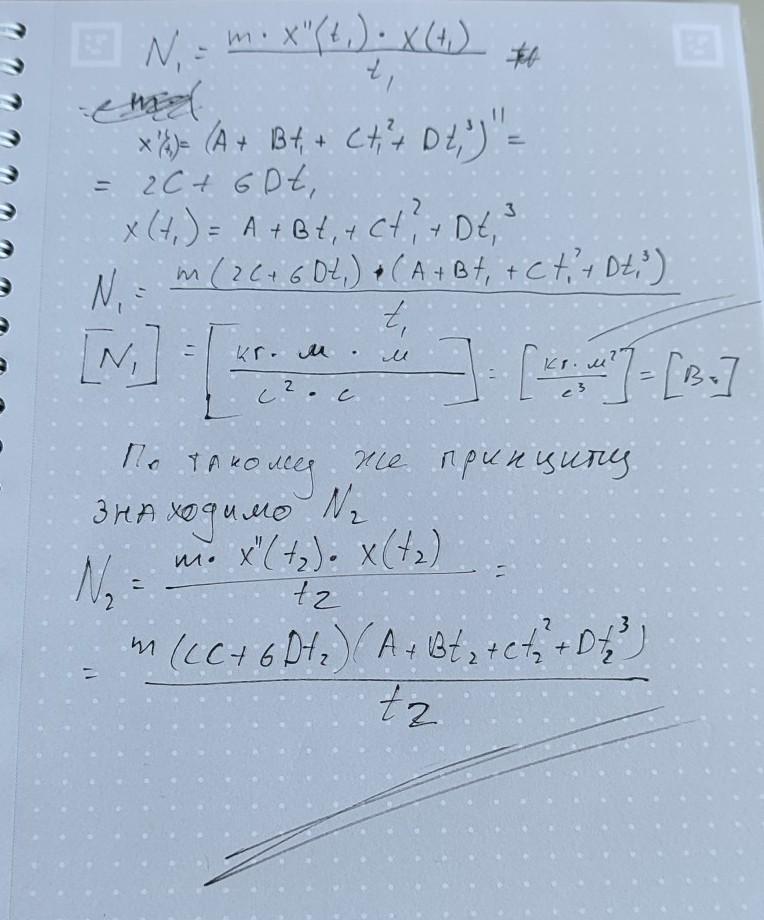 N₁ = m · x''(t₁) · x(t₁) / t₁
x''(t₁) = (A + Bt₁ + Ct₁² + Dt₁³)'' =
= 2C + 6Dt₁
x(t₁) = A + Bt₁ + Ct₁² + Dt₁³
N₁ = m(2C + 6Dt₁) · (A + Bt₁ + Ct₁² + Dt₁³) / t₁
[N₁] = [кг · м · м / с² · с] = [кг · м² / с³] = [Вт]
По такому же принципу
знаходимо N₂
N₂ = m · x''(t₂) · x(t₂) / t₂ =
= m(CC + 6Dt₂)(A + Bt₂ + Ct₂² + Dt₂³) / t₂